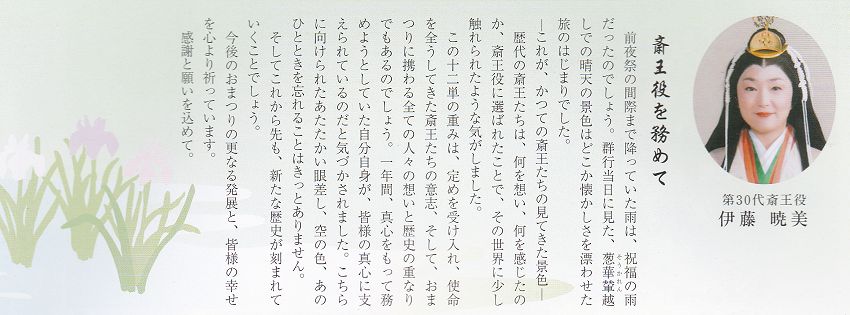 斎王役を務めて
前夜祭の間際まで降っていた雨は、祝福の雨
だったのでしょう。群行当日に見た、葱華輦越
そうかれん
しでの晴天の景色はどこか懐かしさを漂わせた
旅のはじまりでした。
―これが、かつての斎王たちの見てきた景色―
歴代の斎王たちは、何を想い、何を感じたの
か、斎王役に選ばれたことで、その世界に少し
触れられたような気がしました。
この十二単の重みは、定めを受け入れ、使命
を全うしてきた斎王たちの意志、そして、おま
つりに携わる全ての人々の想いと歴史の重なり
でもあるのでしょう。一年間、真心をもって務
めようとしていた自分自身が、皆様の真心に支
えられているのだと気づかされました。こちら
に向けられたあたたかい眼差し、空の色、あの
ひとときを忘れることはきっとありません。
そしてこれから先も、新たな歴史が刻まれて
いくことでしょう。
今後のおまつりの更なる発展と、皆様の幸せ
を心より祈っています。
感謝と願いを込めて。
第30代斎王役
伊藤 暁美